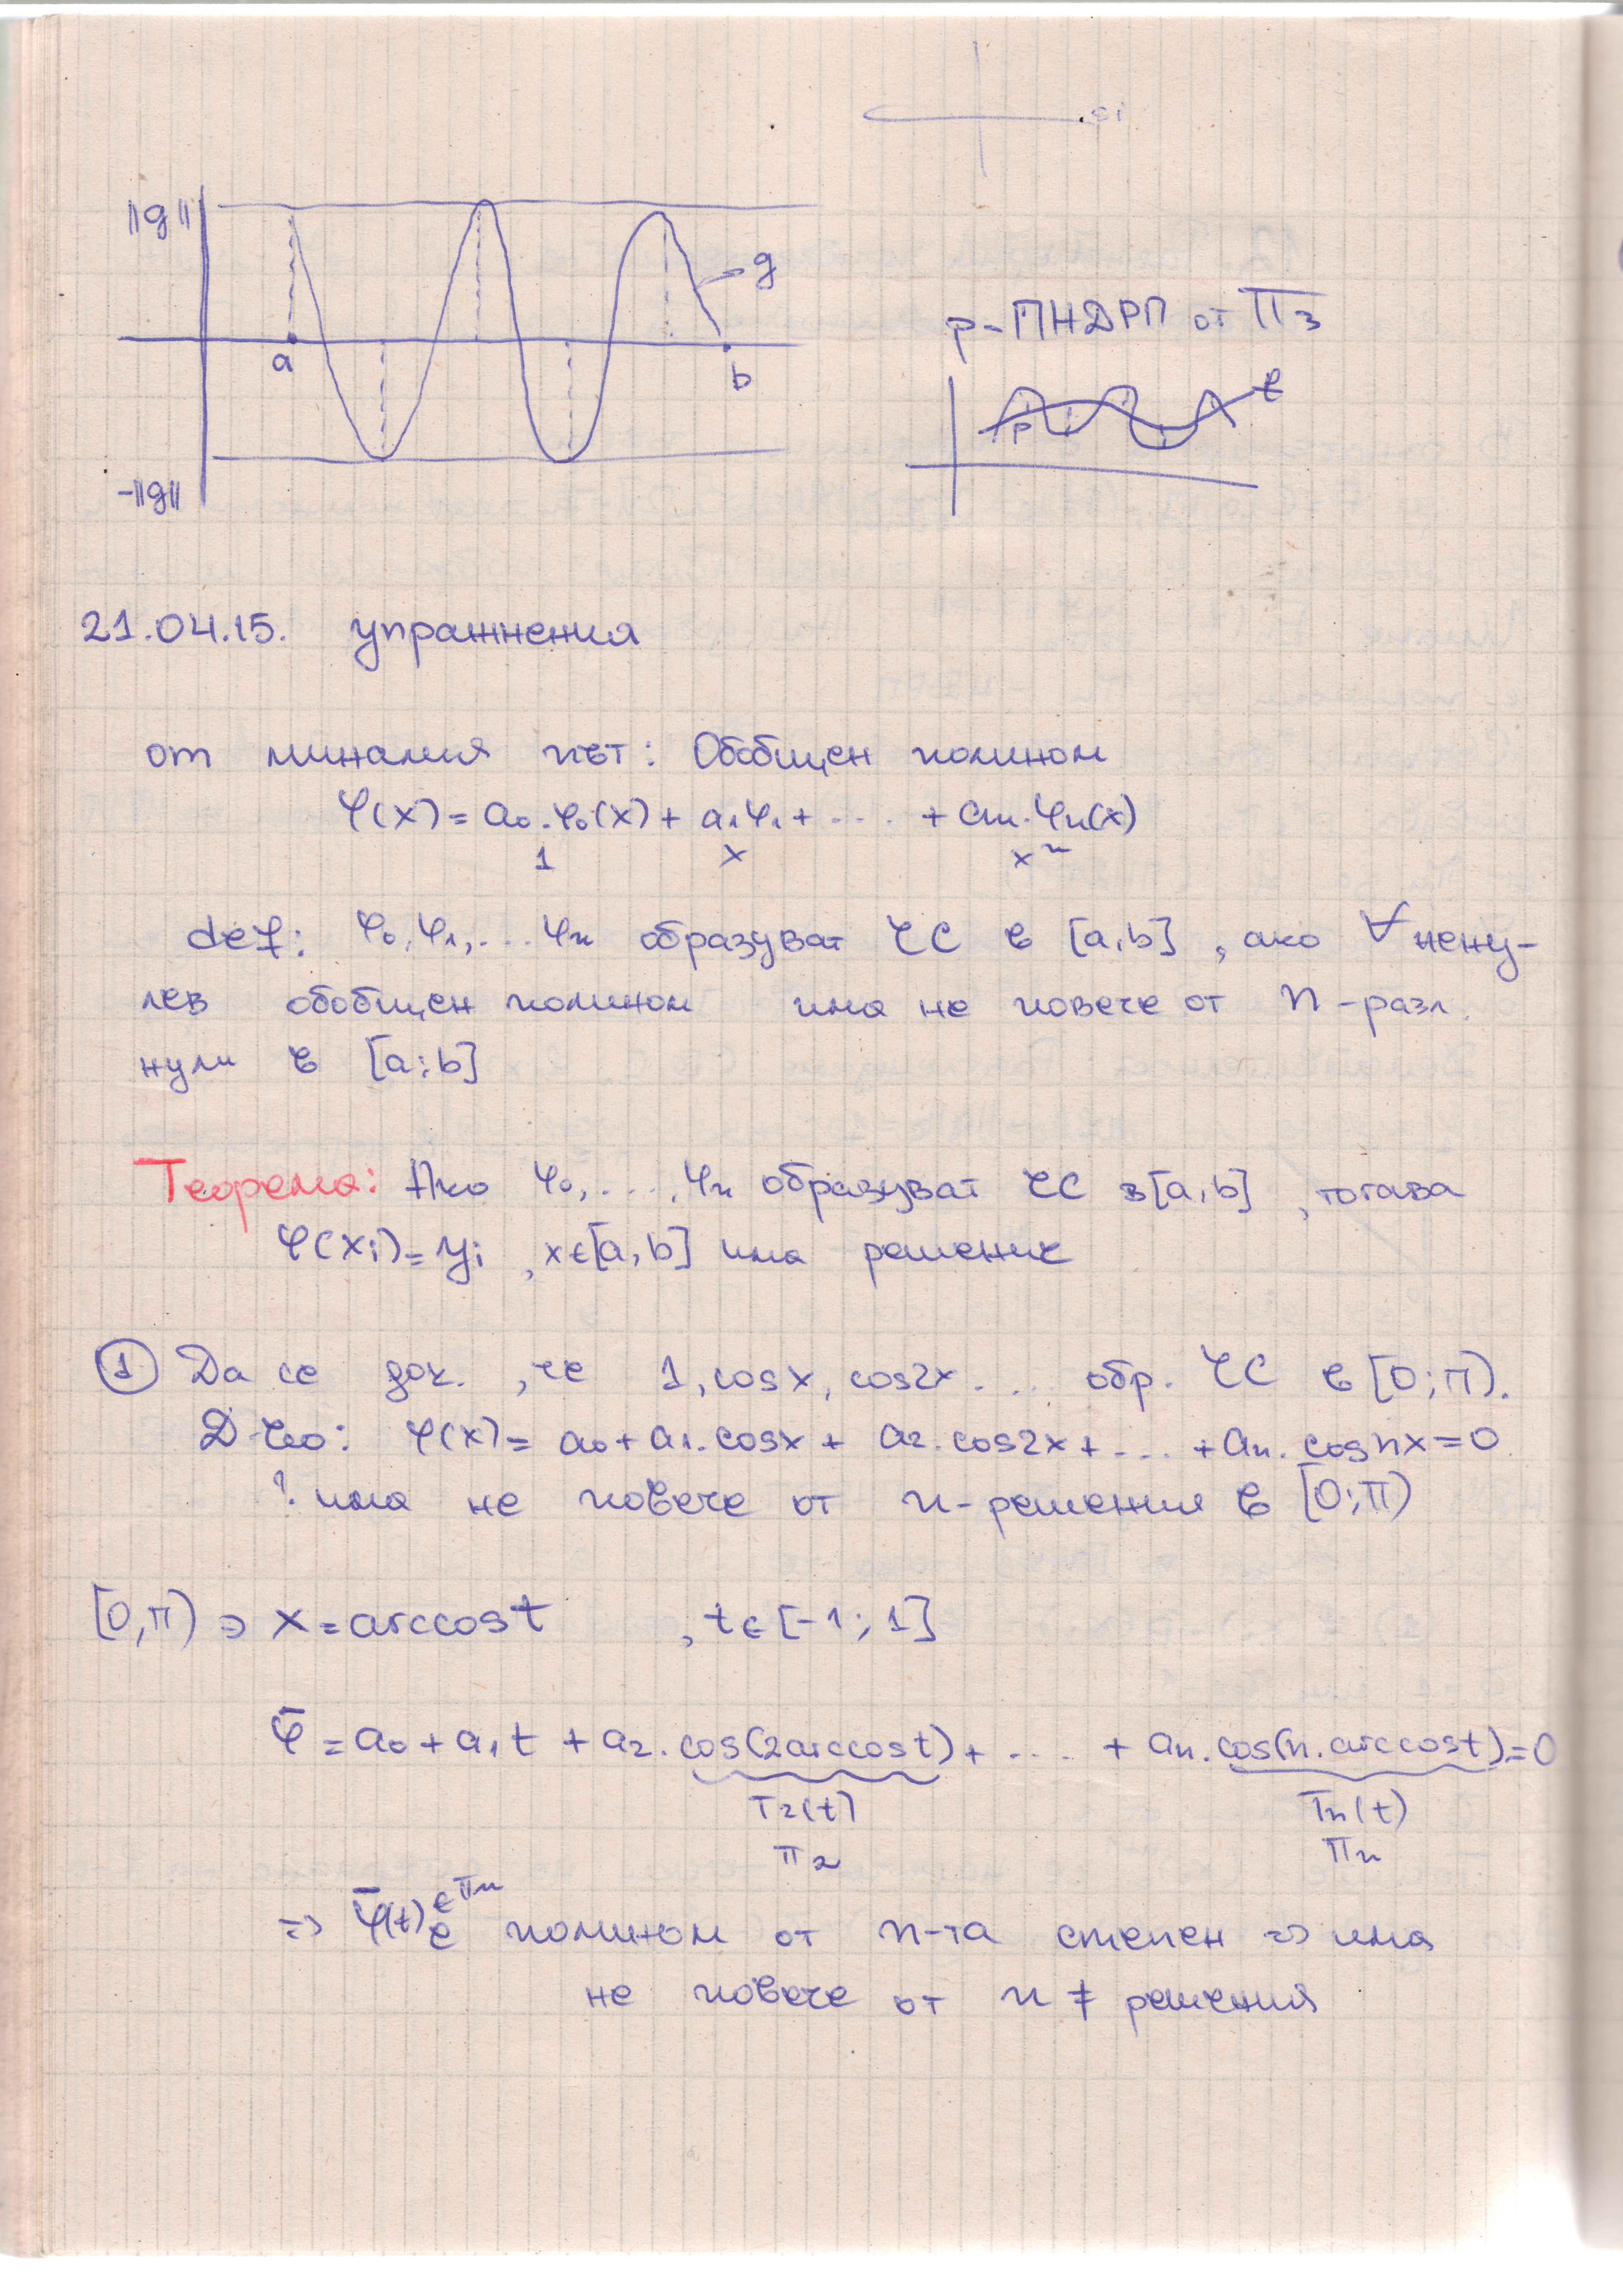 ||g||
g
a
b
-||g||
p-ПНДРП от П₃
f
p
21.04.15. упражнения
от миналия път: Обобщен полином
φ(x)= a₀.φ₀(x)+ a₁φ₁+ .... + aₙ.φₙ(x)
1 x xⁿ
def: φ₀,φ₁,...φₙ образуват ЧС в [a,b] , ако ∀ нену-
лев обобщен полином има не повече от n-разл.
нули в [a;b]
Теорема: Ако φ₀,....,φₙ образуват ЧС в [a,b] , тогава
φ(xᵢ)=yᵢ , x∈[a,b] има решение
① Да се док. , че 1, cosx, cos2x... обр. ЧС в [0;π).
Д-во: φ(x)= a₀+a₁.cosx+ a₂.cos2x+... +aₙ.cosnx=0
? има не повече от n-решения в [0;π)
[0,π) => x=arccost , t∈[-1;1]
φ̄ =a₀+a₁t +a₂.cos(2arccost)+ .... + aₙ.cos(n.arccost)=0
T₂(t) Tₙ(t)
π₂ πₙ
=> φ̄(t) е ∈πₙ полином от n-та степен => има
не повече от n ≠ решения